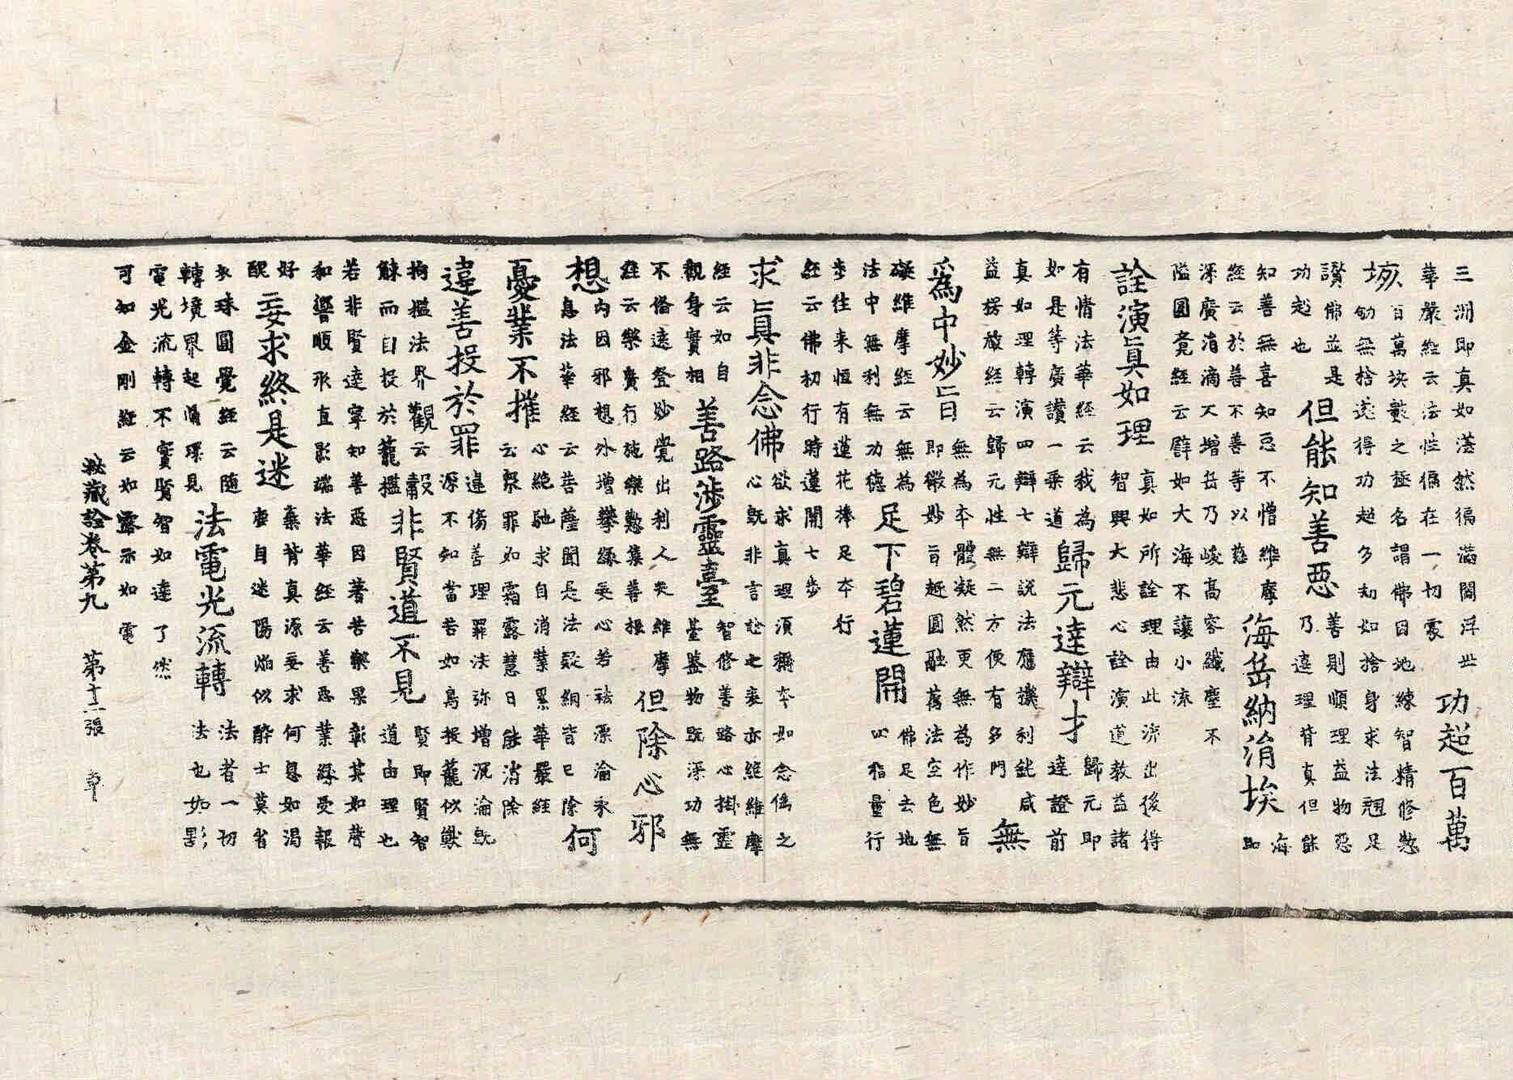 三洲即真如湛然徧滿閻浮世
華嚴經云法性徧在一切處
功超百萬
垓
百萬垓數之極名謂佛因地練智精修數
劫無捨遂得功功超多劫如捨身求法翹足
讚佛並是
功超也
但能知善惡
善則順理益物惡
乃違理背真但能
知善無喜知惡不憎維摩
經云於善不善等以慈
海岳納涓埃
海
即
深廣涓滴不增岳乃峻高容纖塵不
隘圓覺經云譬如大海不讓小流
詮演真如理
真如所詮理由此流出後得
智興大悲心詮演道教益諸
有情法華經云我為
如是等廣讚一乘道
歸元達辯才
歸元即
達證前
真如理轉演四辯七辯說法應機利鈍咸
益楞嚴經云歸元性無二方便有多門
無
為中妙旨
無為本體凝然更無為作妙旨
即微妙旨趣圓融萬法空色無
礙維摩經云無為
法中無利無功德
足下碧蓮開
佛足去地
四指量行
步往來恒有蓮花捧足本行
經云佛初行時蓮開七步
求真非念佛
欲求真理須稱本如念偽之
心既非言詮之表亦維維摩
經云如自
觀身實相
善路涉靈臺
智修善路心掛靈
臺鑒物既深功無
不備遠登妙覺出利人天維摩
經云樂廣行施樂懃集善根
但除心邪
想
內因邪想外增攀緣妄心若祛漂淪永
息法華經云菩薩聞是法疑網皆已除
何
憂業不摧
心絕馳求自消業累華嚴經
云眾罪如霜露慧日能消除
違善投於罪
違傷善理罪弥增沉淪既
源不知當苦如鳥投蘢似獸
拘檻法界觀云
觫而自投於籠檻
非賢道不見
賢即賢智
道由理也
若非賢達寧知善惡因著苦樂果彰其如聲
和響順形直影端法華經云善惡業緣受報
好
醜
妄求終是迷
棄背真源妄求何息如渴
鹿自迷陽焰似醉士莫省
衣珠圓覺經云隨
轉境界起循環見
法電光流轉
法者一切
法也如影
電光流轉不實賢智如達了然
可知金剛經云如露亦如電
秘藏詮卷第九 第十二張 章